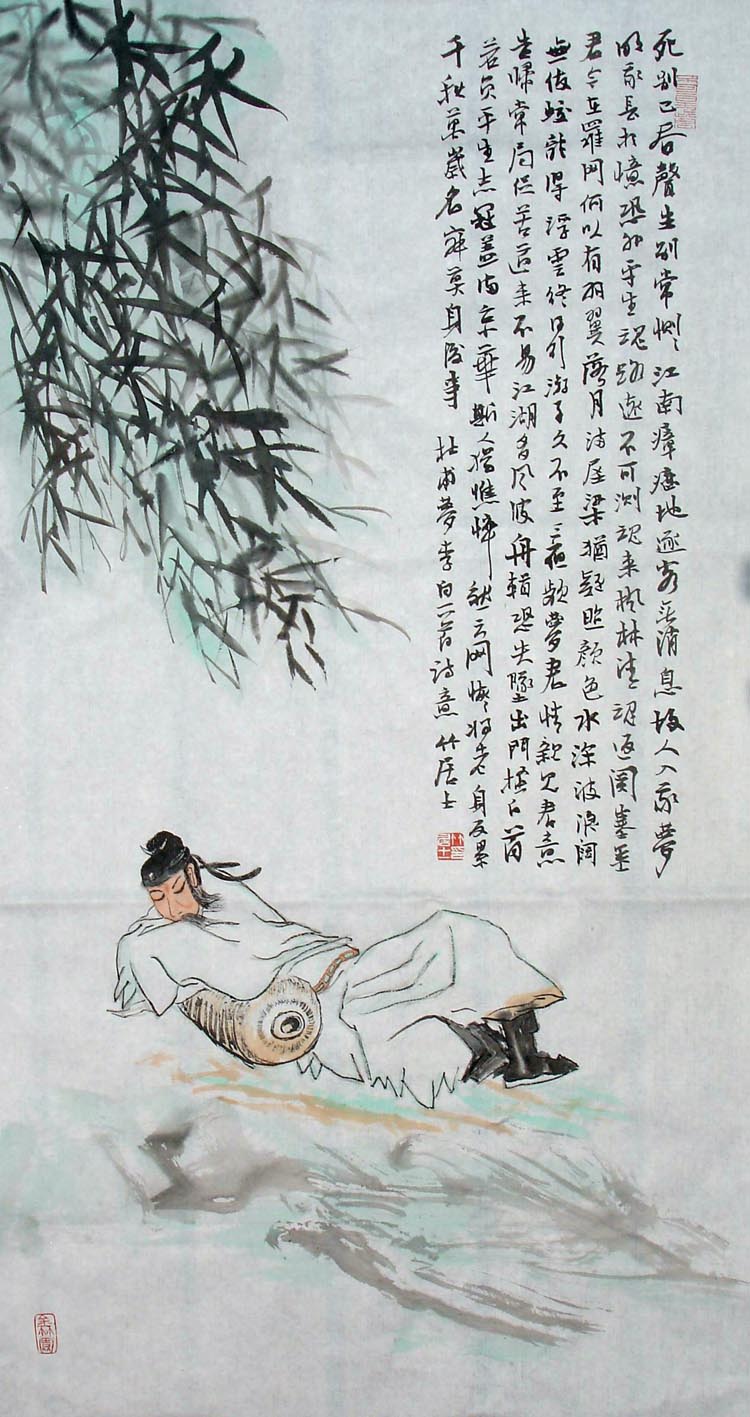 死别已吞聲生别常恻〻江南瘴癘地逐客无消息故人入我夢
明我長相憶恐非平生魂路遠不可测魂来枫林青魂返関塞黑
君今在羅网何以有羽翼落月满屋梁猶疑照颜色水深波浪阔
無使蛟龍得浮雲终日行游子久不至三夜頻夢君情親见君意
告歸常局促苦道来不易江湖多风波舟楫恐失墜出門搔白首
若负平生志冠盖满京華斯人獨憔悴孰云网恢〻将老身反累
千秋萬歲名寂莫身後事 杜甫夢李白二首诗意 竹居士